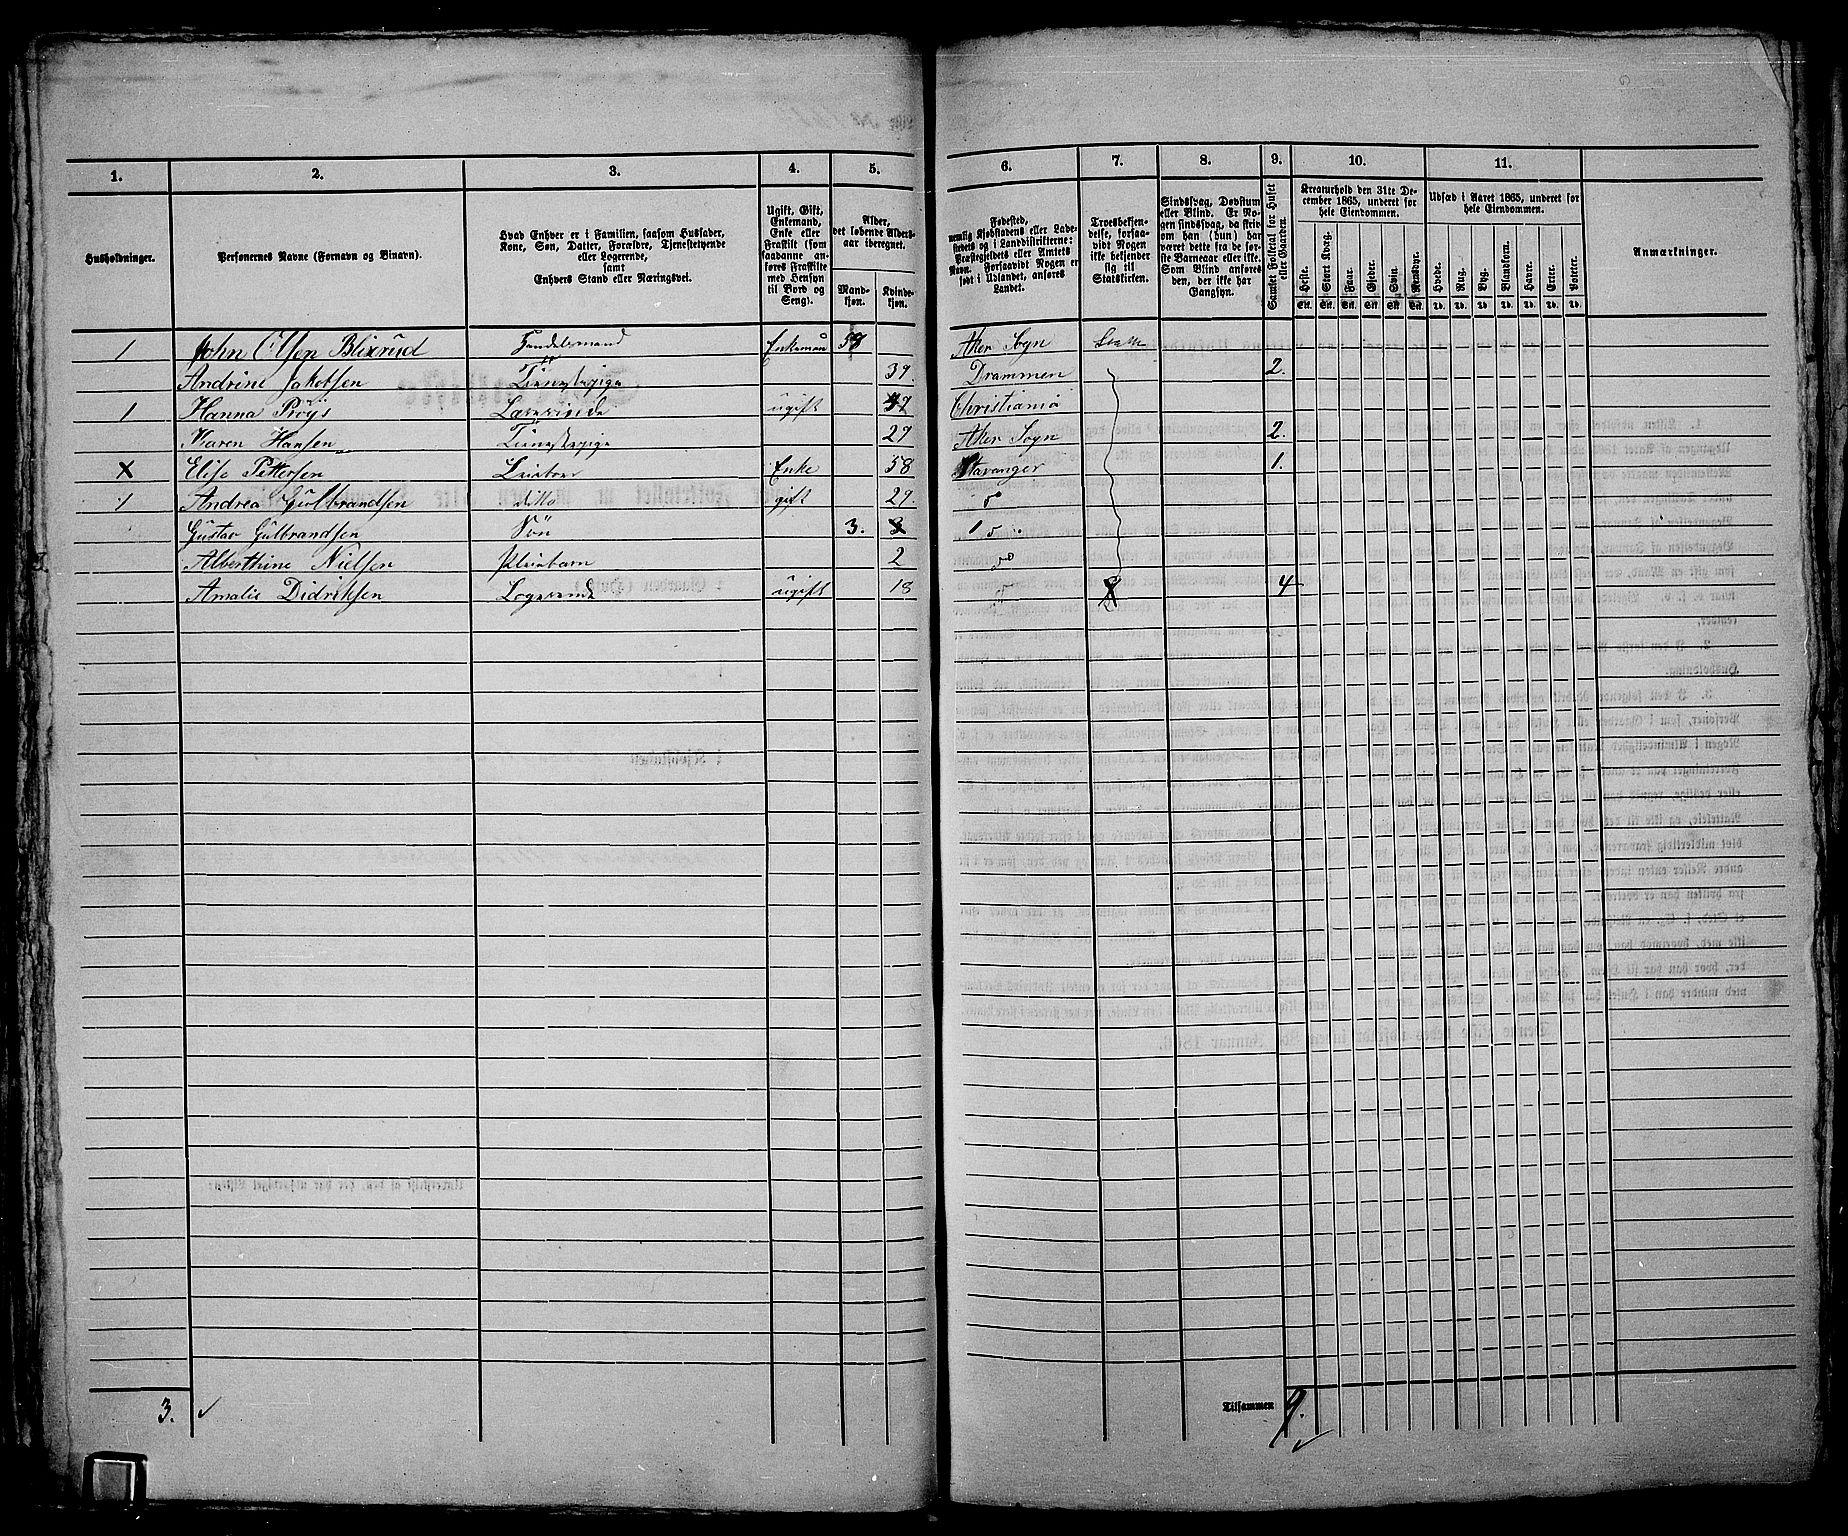 1. 2. 3. 4. 5. 6. 7. 8. 9. 10. 11.
Husholdninger.
Personernes Navne (Fornavn og Binavn).
Hvad Enhver er i Familien, saasom Husfader,
Kone, Søn, Datter, Forældre, Tjenestetyende
eller Logerende,
samt
Enhvers Stand eller Næringsvei.
Ugift, Gift,
Enkemand,
Enke eller
Fraskilt (som
saadanne an-
føres Fraskilte
med Hensyn
til Bord og
Seng).
Alder,
det løbende Alders-
aar iberegnet.
Mand-
kjøn.
Kvinde-
kjøn.
Fødested,
nemlig Kjøbstadens eller Lade-
stedets og i Landdistrikterne:
Præstegjeldets eller Amtets
Navn. Forsaavidt Nogen er
født i Udlandet, anføres
Landet.
Troesbekjen-
delse, forsaa-
vidt Nogen
ikke bekjender
sig til
Statskirken.
Sindssvag, Døvstum
eller Blind. Er No-
gen sindssvag, da skriv
om han (hun) har
været dette fra de før-
ste Barneaar eller ikke.
Som Blind anføres
den, der ikke har
Gangsyn.
Samlet Folketal for Huset
eller Gaarden.
Kreaturhold den 31te De-
cember 1865, underet for
hele Eiendommen.
Heste. Stort Kvæg. Faar. Gjeder. Svin. Rensdyr.
Stk. Stk. Stk. Stk. Stk. Stk.
Udsæd i Aaret 1865, underet for
hele Eiendommen.
Hvede. Rug. Byg. Blandkorn. Havre. Erter. Poteter.
Td. Td. Td. Td. Td. Td. Td.
Anmærkninger.
1 John Olsen Blixrud Handelsmand Enkeman 58 Aker Sogn
Andrine Jakobsen Tienestepige 39. Drammen 2.
1 Hanna Prøjs ugift Christiania
Karen Hansen Tienestepige 29 Aker Sogn 2.
X Elise Pettersen Enke 58 Stavanger 1.
1 Andrea Gulbrandsen ditto gift 29.
Gustav Gulbrandsen Søn 3.
Alberthine Nielsen Pleiebarn 2 do
Amalie Didriksen Logerende ugift 18 4
3. Tilsammen 9.